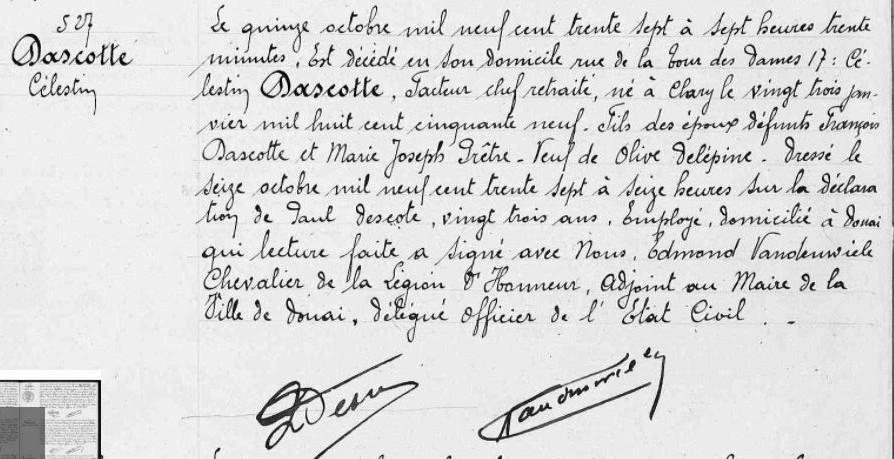 527
Dascotte
Célestin
Le quinze octobre mil neuf cent trente sept à sept heures trente
minutes, Est décédé en son domicile rue de la Cour des Dames 17 : Cé-
lestin Dascotte, Facteur chef retraité, né à Clary le vingt trois jan-
vier mil huit cent cinquante neuf. Fils des époux défunts François
Dascotte et Marie Joseph Prêtre. Veuf de Olive Delépine. Dressé le
seize octobre mil neuf cent trente sept à seize heures sur la déclara
tion de Paul Descote, vingt trois ans, Employé, domicilié à Douai
qui lecture faite a signé avec Nous, Edmond Vandenwiele
Chevalier de la Légion d'Honneur, Adjoint au Maire de la
Ville de Douai, délégué Officier de l'Etat Civil. -